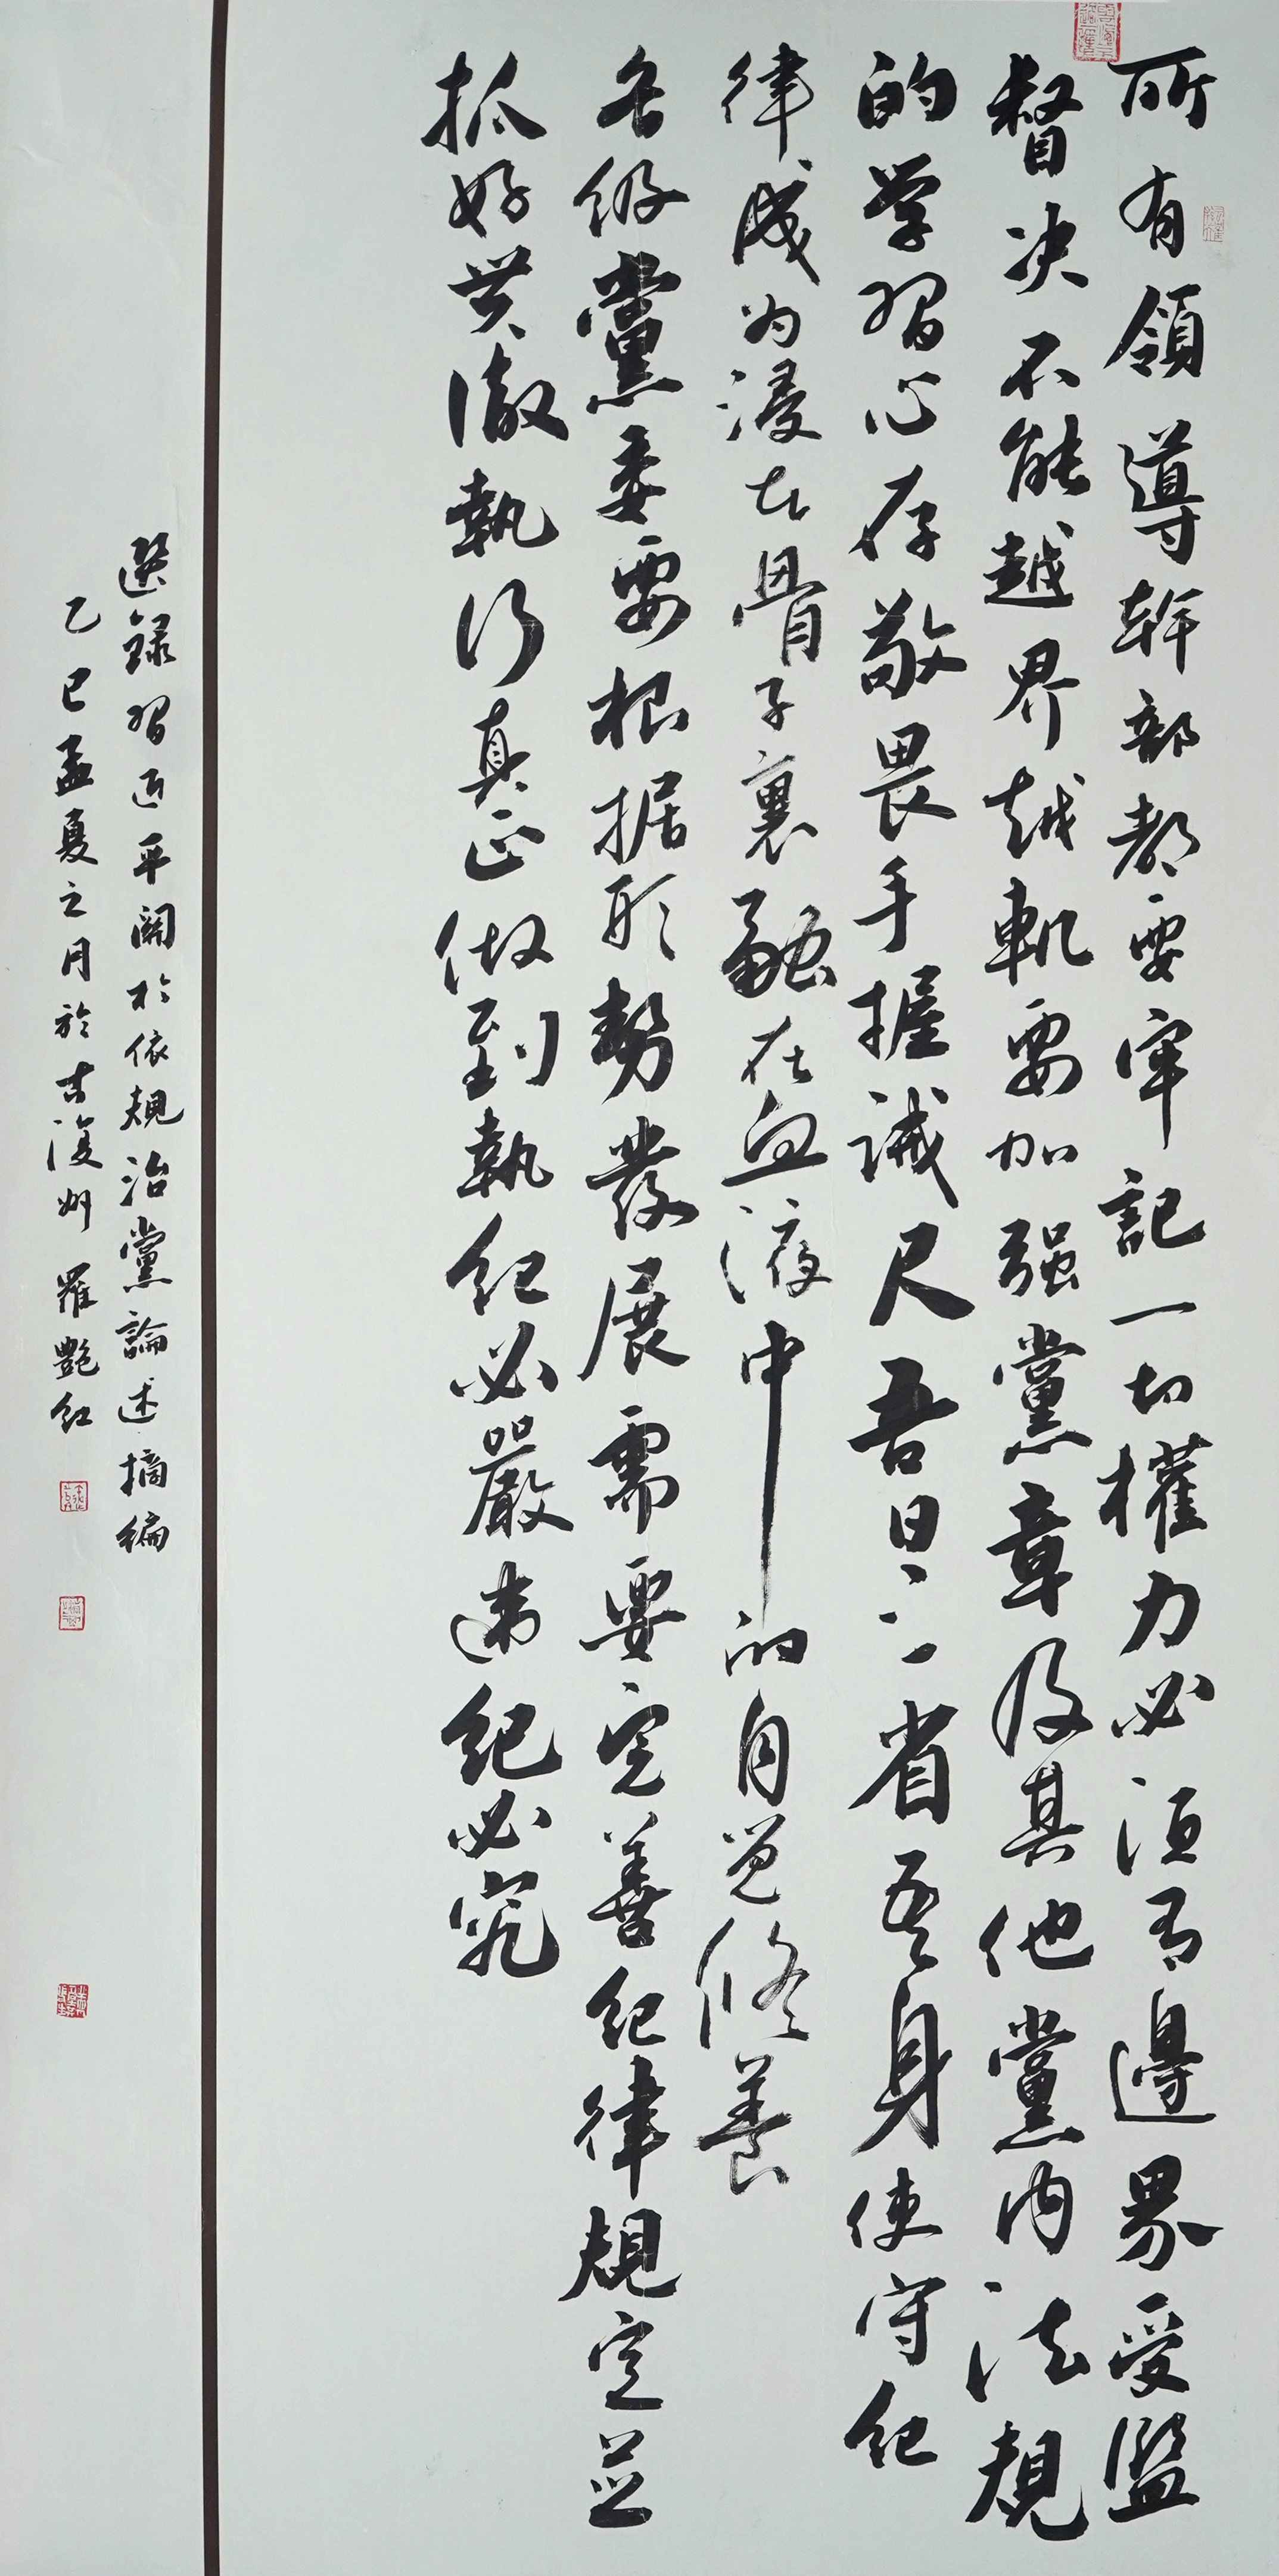 所有領導幹部都要牢記一切權力必須有邊界受監
督决不能越界越軌要加强黨章及其他黨内法規
的学習心存敬畏手握誡尺吾日三省吾身使守纪
律成为浸在骨子裏融在血液中的自觉修養
各级黨委要根据形势發展需要完善纪律規定並
抓好贯徹執行真正做到執纪必嚴违纪必究
選録習近平關於依規治黨論述摘编
乙巳孟夏之月於古復州 羅艷红